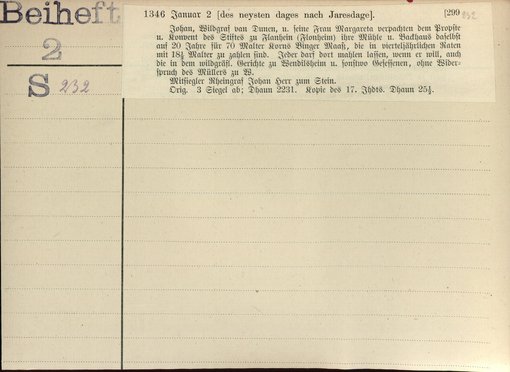 Beiheft
2
S 232
1346 Januar 2 [des neysten dages nach Jaresdage]. [299
Johan, Wildgraf van Dunen, u. seine Frau Margareta verpachten dem Propste
u. Konvent des Stiftes zu Flanheim (Flonheim) ihre Mühle u. Badhaus daselbst
auf 20 Jahre für 70 Malter Korns Binger Maaß, die in vierteljährlichen Raten
mit 18½ Malter zu zahlen sind. Jeder darf dort mahlen lassen, wenn er will, auch
die in dem wildgräfl. Gerichte zu Wendilsheim u. sonstwo Gesessenen, ohne Wider-
spruch des Müllers zu W.
Mitsiegler Rheingraf Johan Herr zum Stein.
Orig. 3 Siegel ab; Dhaun 2231. Kopie des 17. Jhdts. Dhaun